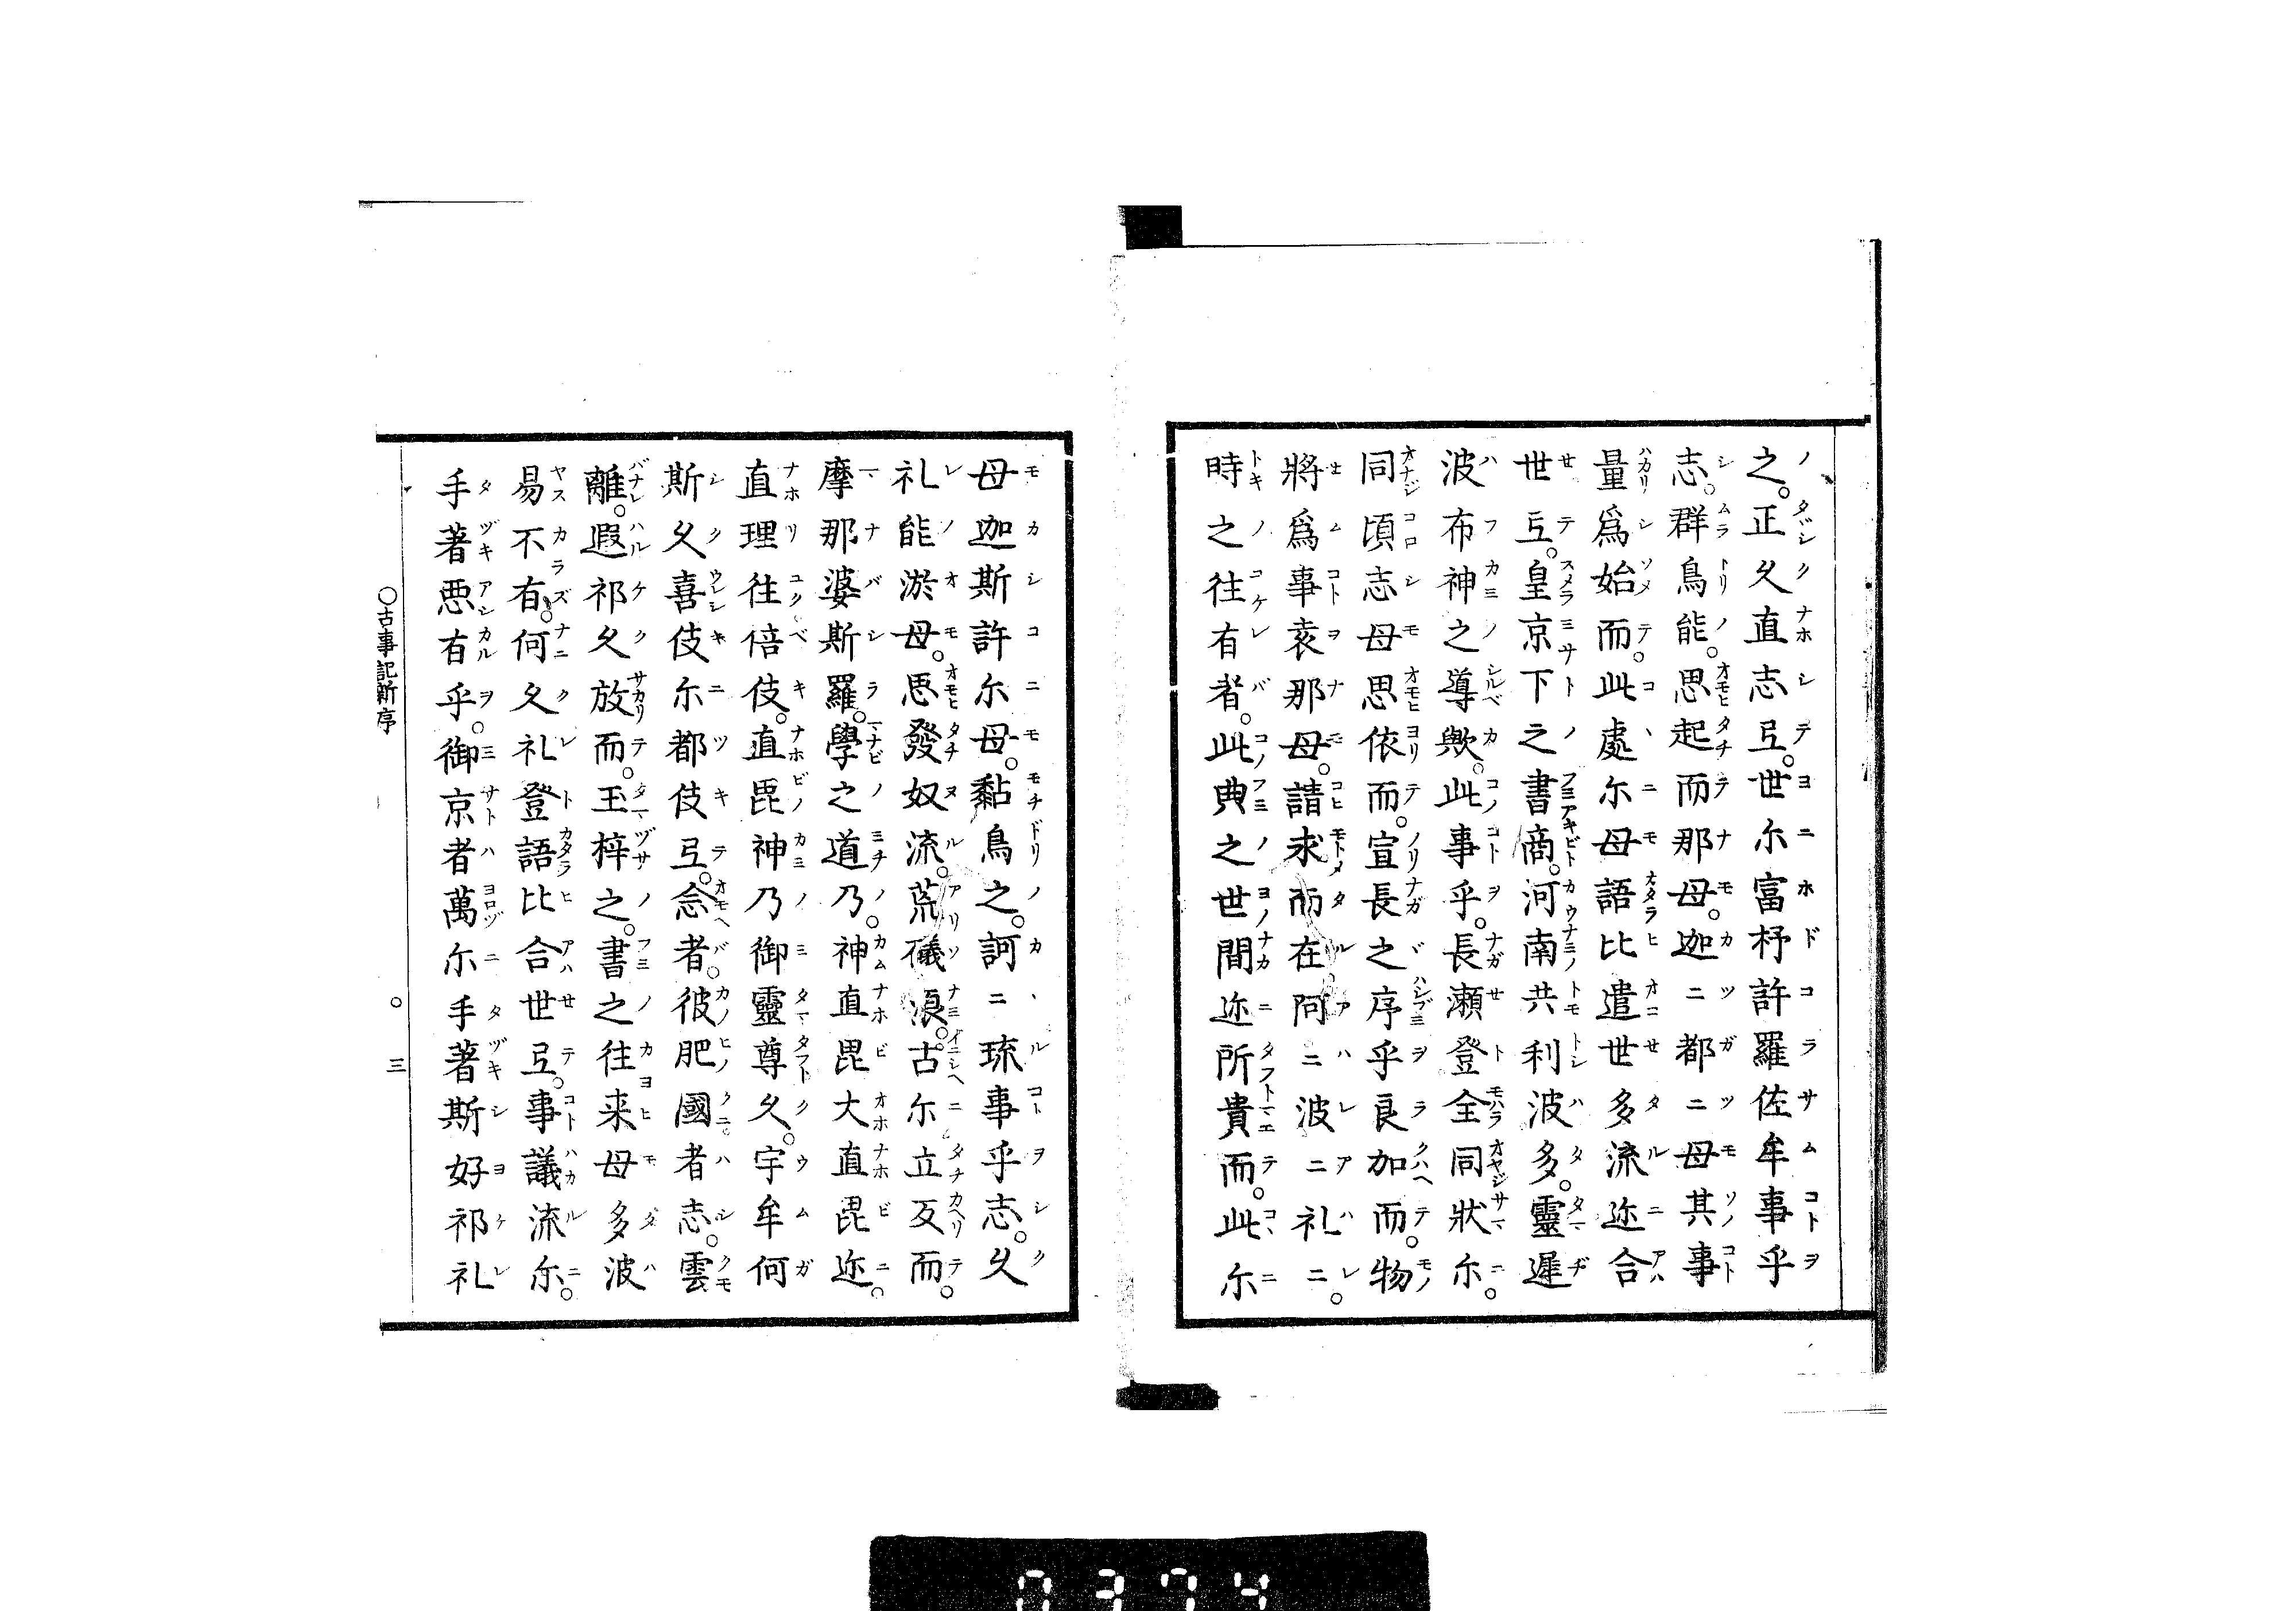 之。正久直志弖。世尓富杼許羅佐牟事乎
志。群鳥能。思起而那母。迦ニ都ニ母其事
量爲始而。此處尓母語比遣世多流迩合
世弖。皇京下之書商。河南共利波多。靈遲
波布神之導歟。此事乎。長瀬登全同狀尓。
同頃志母思依而。宣長之序乎良加而。物
將爲事袁那母。請求而在阿ニ波ニ礼ニ。
時之往有者。此典之世間迩所貴而。此尓
母迦斯許尓母。黏鳥之。訶ニ琉事乎志。久
礼能淤母。思發奴流。荒礒浪。古尓立反而。
摩那婆斯羅。學之道乃。神直毘大直毘迩。
直理往倍伎。直毘神乃御靈尊久。宇牟何
斯久喜伎尓都伎弖。念者。彼肥國者志。雲
離。遐祁久放而。玉梓之。書之往来母多波
易不有。何久礼登語比合世弖。事議流尓。
手著悪有乎。御京者萬尓手著斯好祁礼
○古事記新序
○三
0374